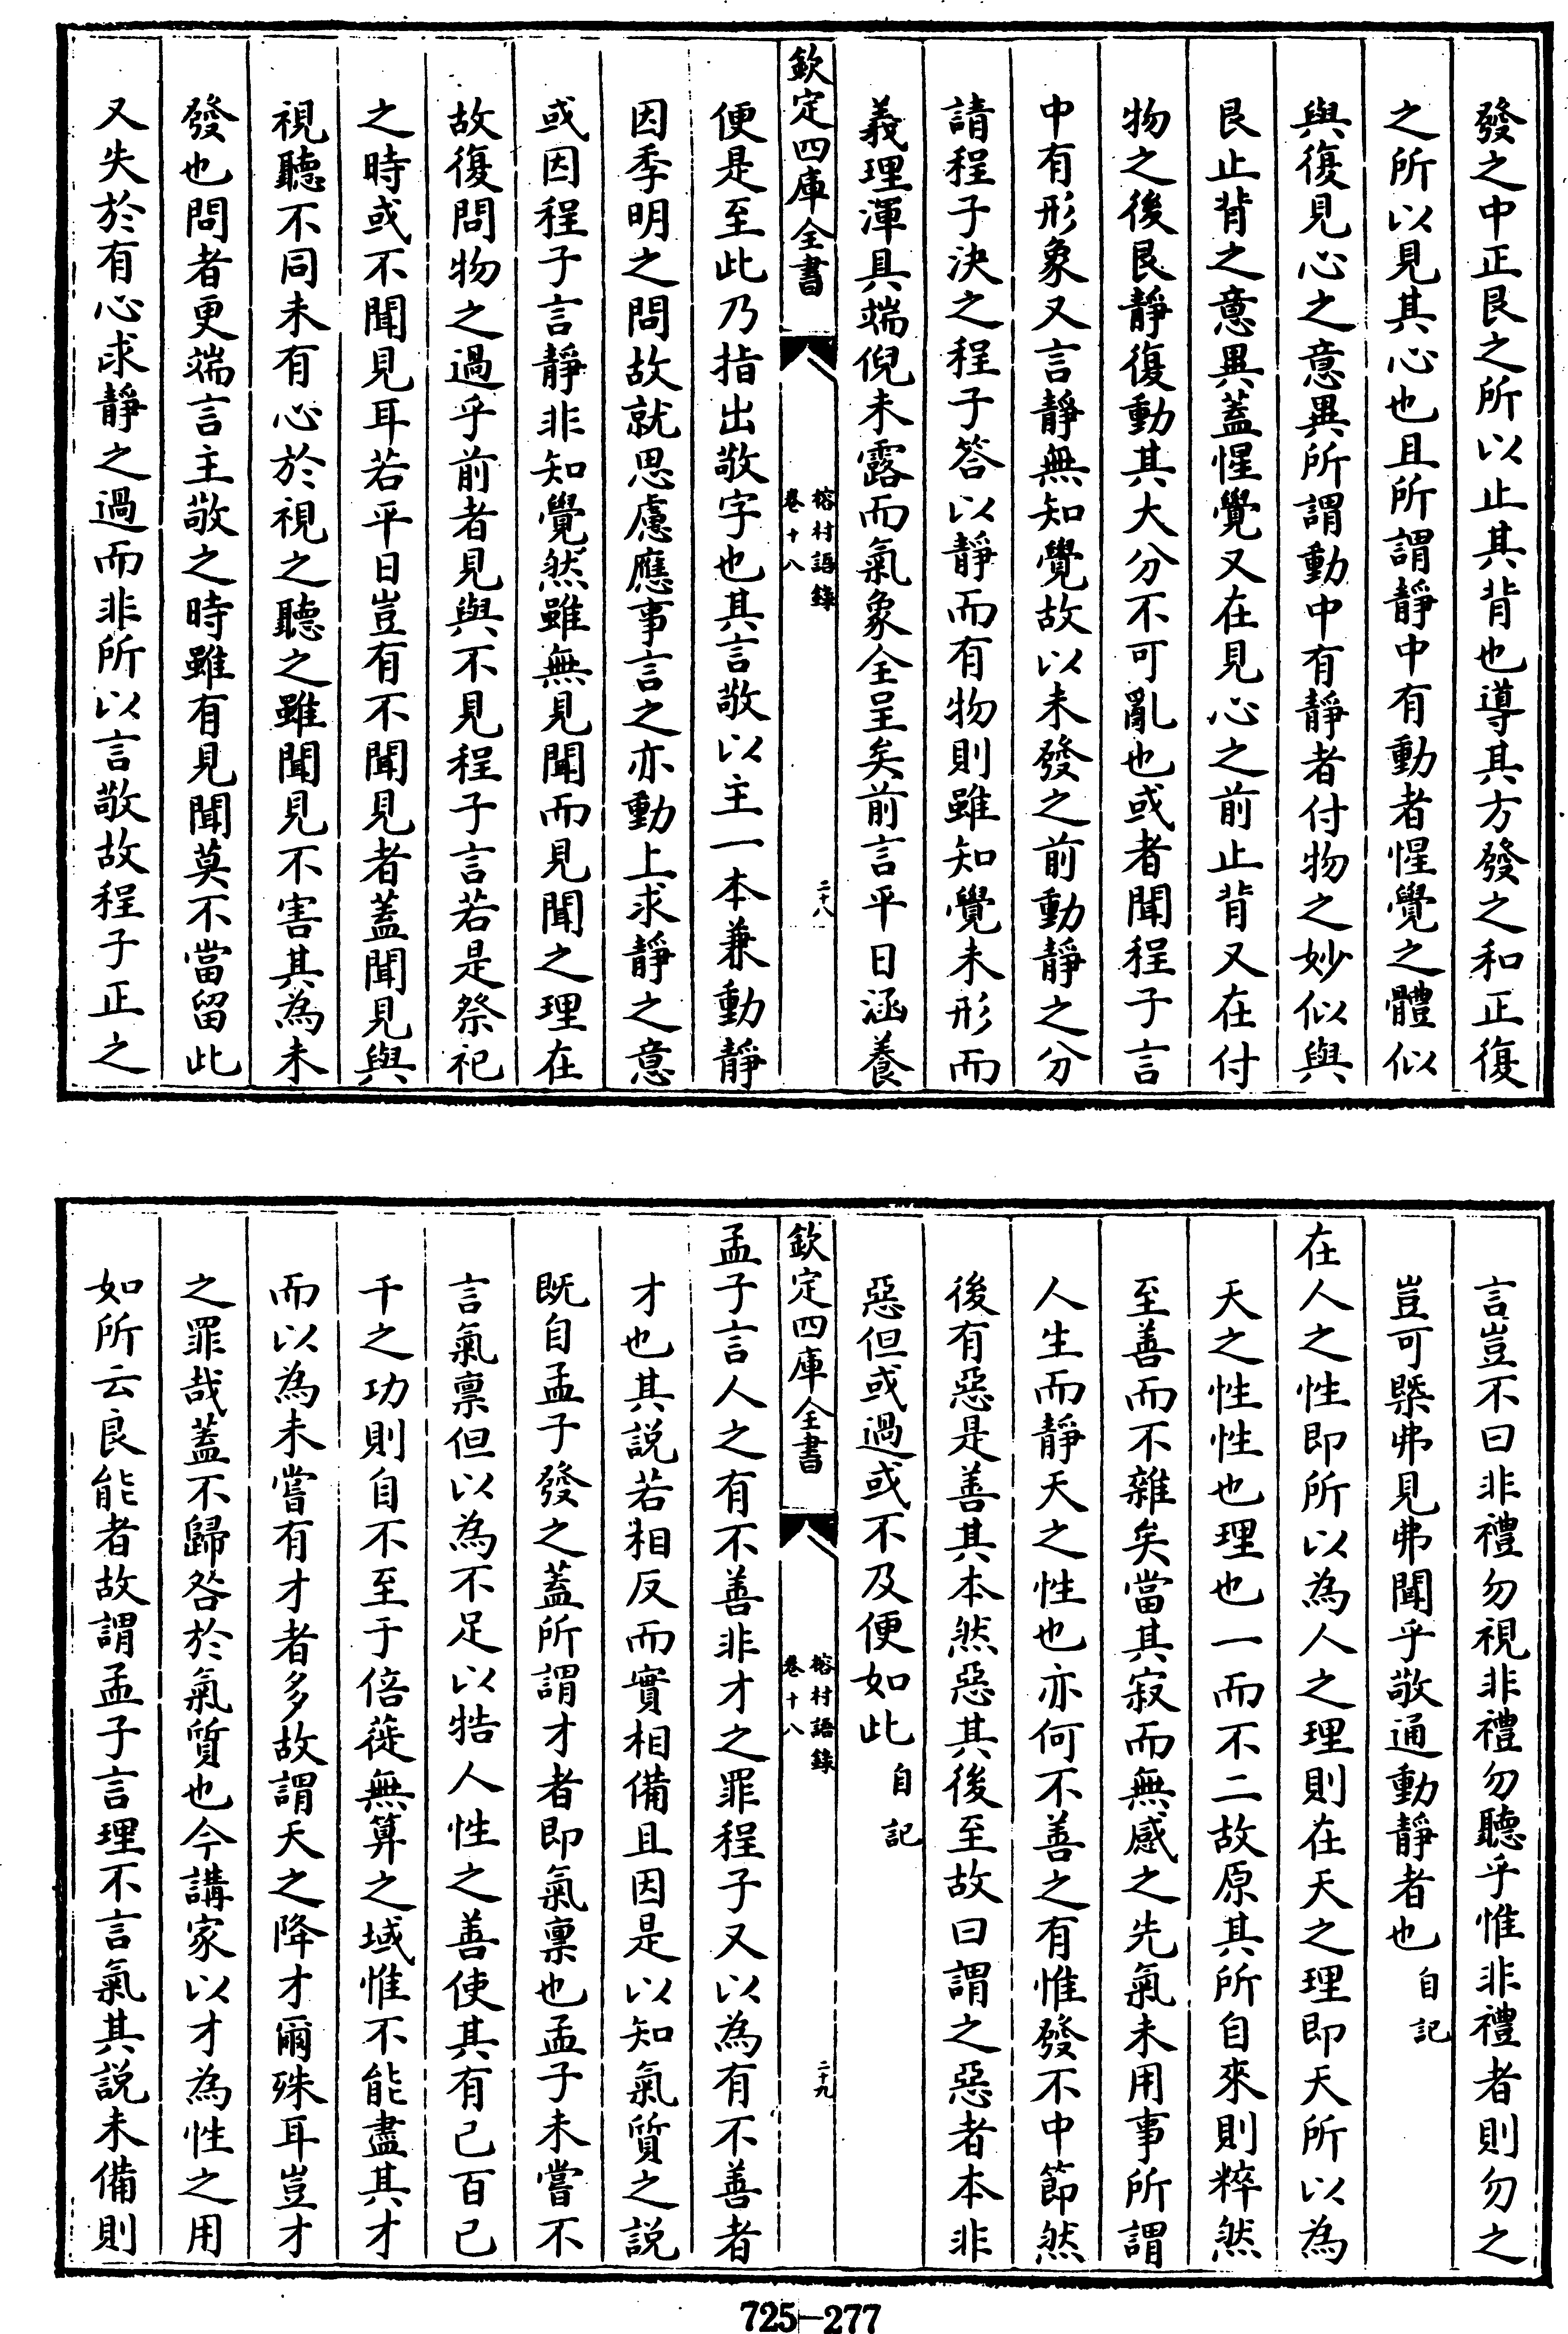 發之中正艮之所以止其背也導其方發之和正復
之所以見其心也且所謂靜中有動者惺覺之體似
與復見心之意異所謂動中有靜者付物之妙似與
艮止背之意異蓋惺覺又在見心之前止背又在付
物之後艮靜復動其大分不可亂也或者聞程子言
中有形象又言靜無知覺故以未發之前動靜之分
請程子決之程子答以靜而有物則雖知覺未形而
義理渾具端倪未露而氣象全呈矣前言平日涵養
欽定四庫全書
榕村語錄
卷十八
二十八
便是至此乃指出敬字也其言敬以主一本兼動靜
因季明之問故就思慮應事言之亦動上求靜之意
或因程子言靜非知覺然雖無見聞而見聞之理在
故復問物之過乎前者見與不見程子言若是祭祀
之時或不聞見耳若平日豈有不聞見者蓋聞見與
視聽不同未有心於視之聽之雖聞見不害其為未
發也問者更端言主敬之時雖有見聞莫不當留此
又失於有心求靜之過而非所以言敬故程子正之
言豈不曰非禮勿視非禮勿聽乎惟非禮者則勿之
豈可槩弗見弗聞乎敬通動靜者也自記
在人之性即所以為人之理則在天之理即天所以為
天之性性也理也一而不二故原其所自來則粹然
至善而不雜矣當其寂而無感之先氣未用事所謂
人生而靜天之性也亦何不善之有惟發不中節然
後有惡是善其本然惡其後至故曰謂之惡者本非
惡但或過或不及便如此自記
欽定四庫全書
榕村語錄
卷十八
二十九
孟子言人之有不善非才之罪程子又以為有不善者
才也其說若相反而實相備且因是以知氣質之說
既自孟子發之蓋所謂才者即氣稟也孟子未嘗不
言氣稟但以為不足以牿人性之善使其有己百己
千之功則自不至于倍蓰無算之域惟不能盡其才
而以為未嘗有才者多故謂天之降才爾殊耳豈才
之罪哉蓋不歸咎於氣質也今講家以才為性之用
如所云良能者故謂孟子言理不言氣其說未備則
725-277